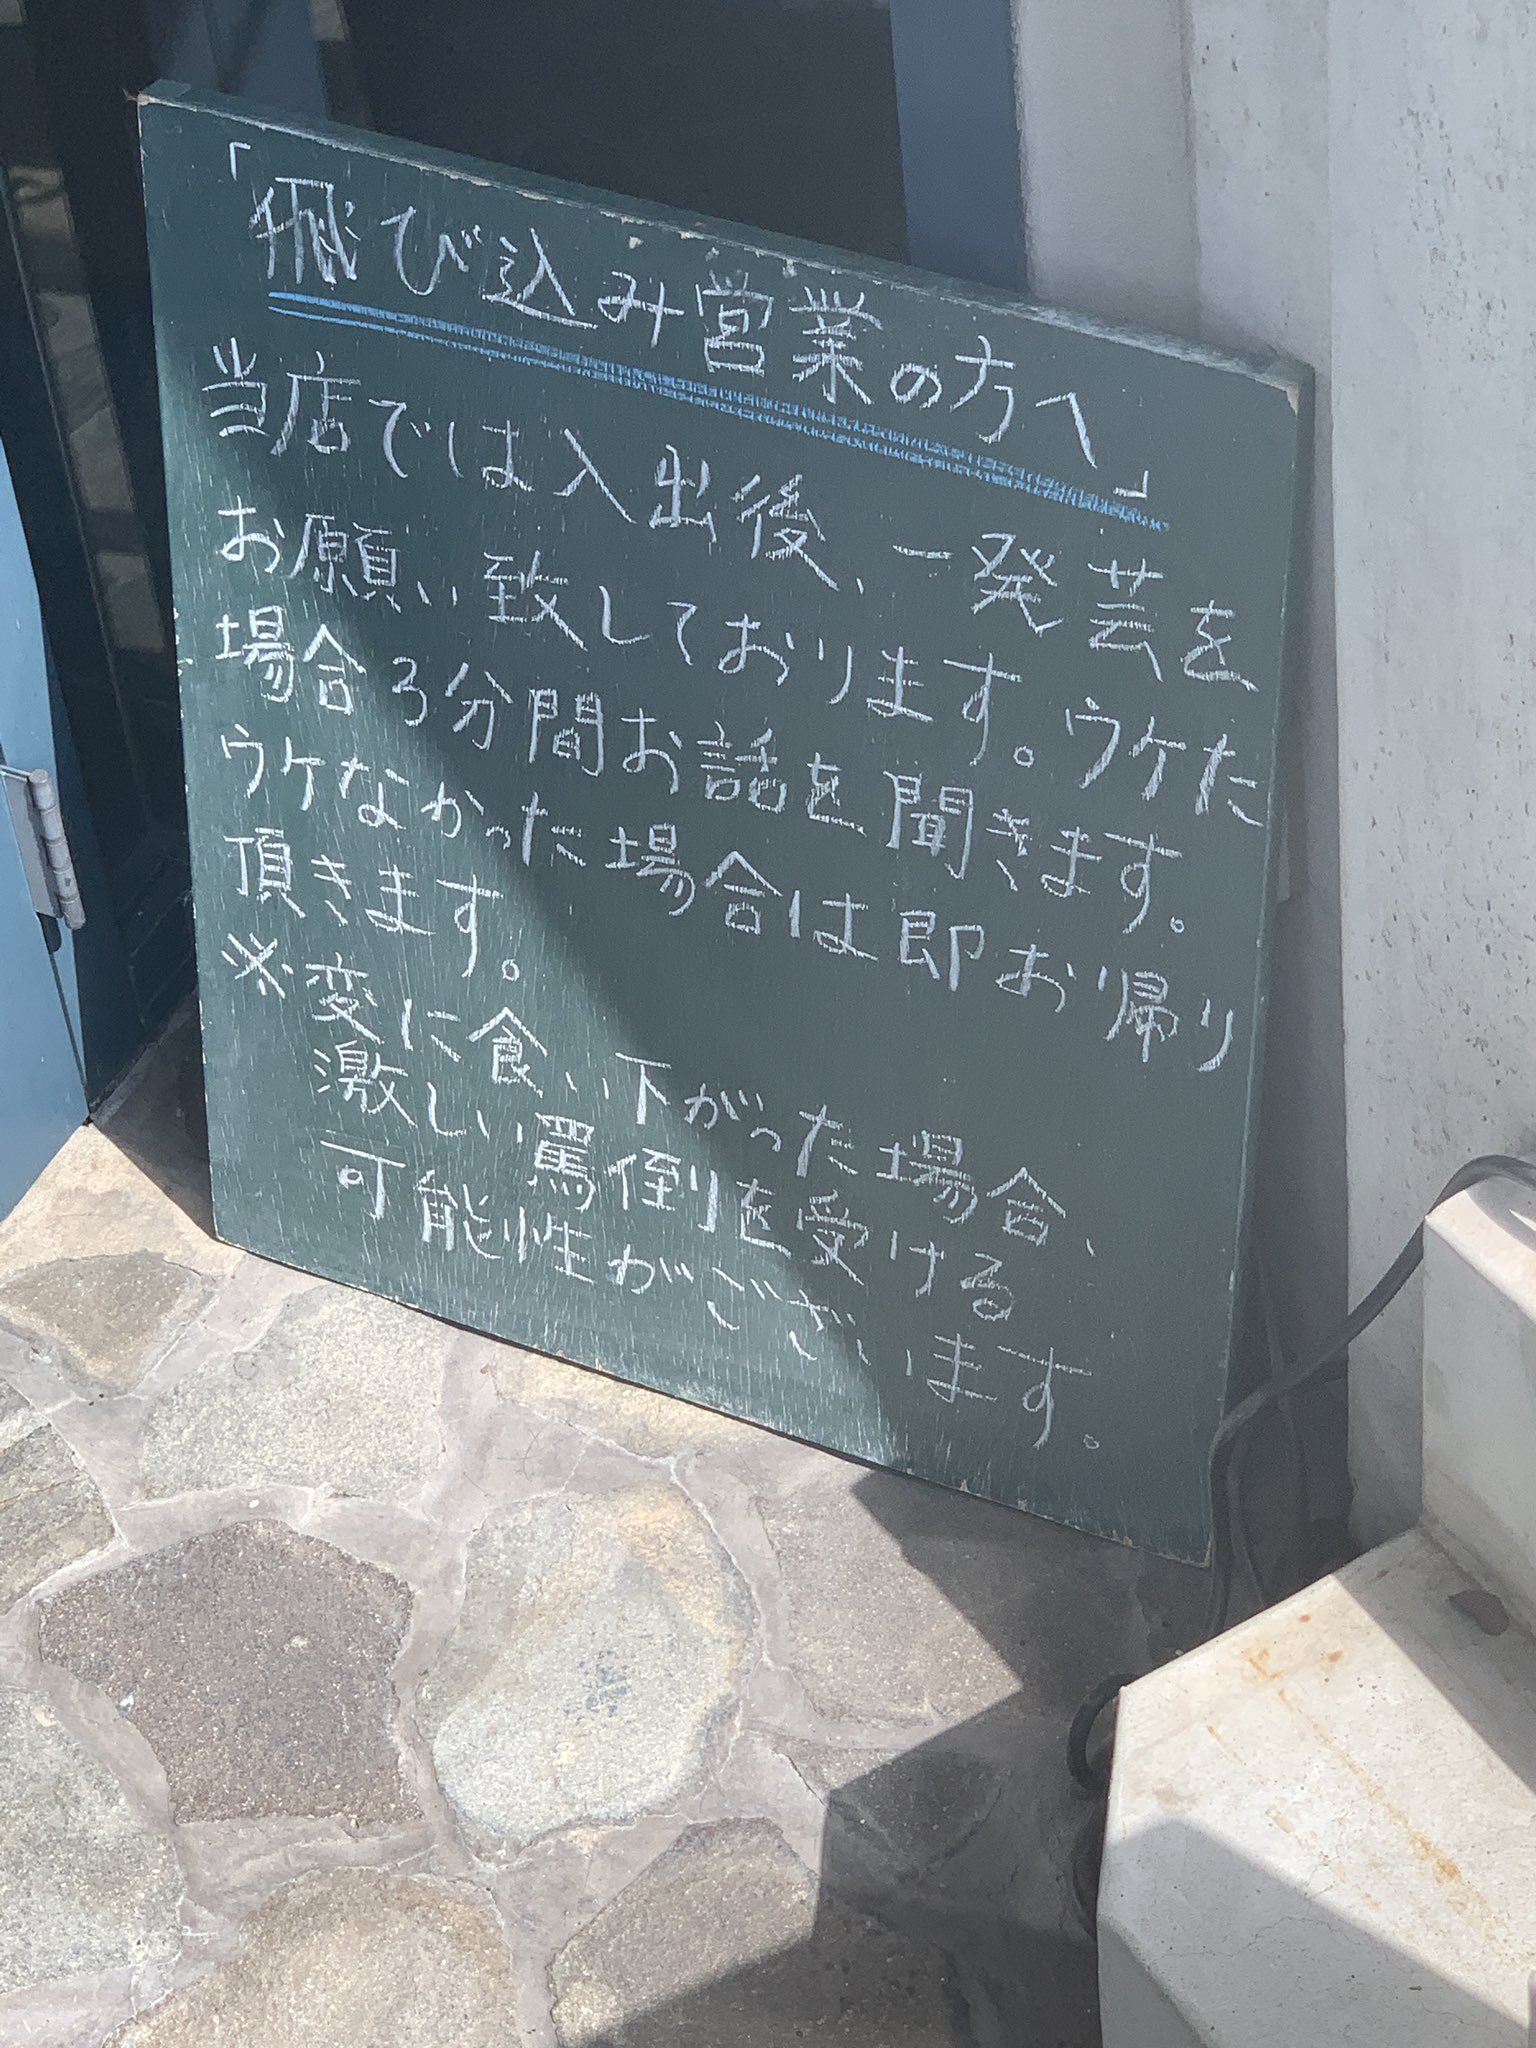 「飛び込み営業の方へ」
当店では入出後、一発芸を
お願い致しております。ウケた
場合3分間お話を聞きます。
ウケなかった場合は即お帰り
頂きます。
※変に食い下がった場合、
激しい罵倒を受ける
可能性がございます。